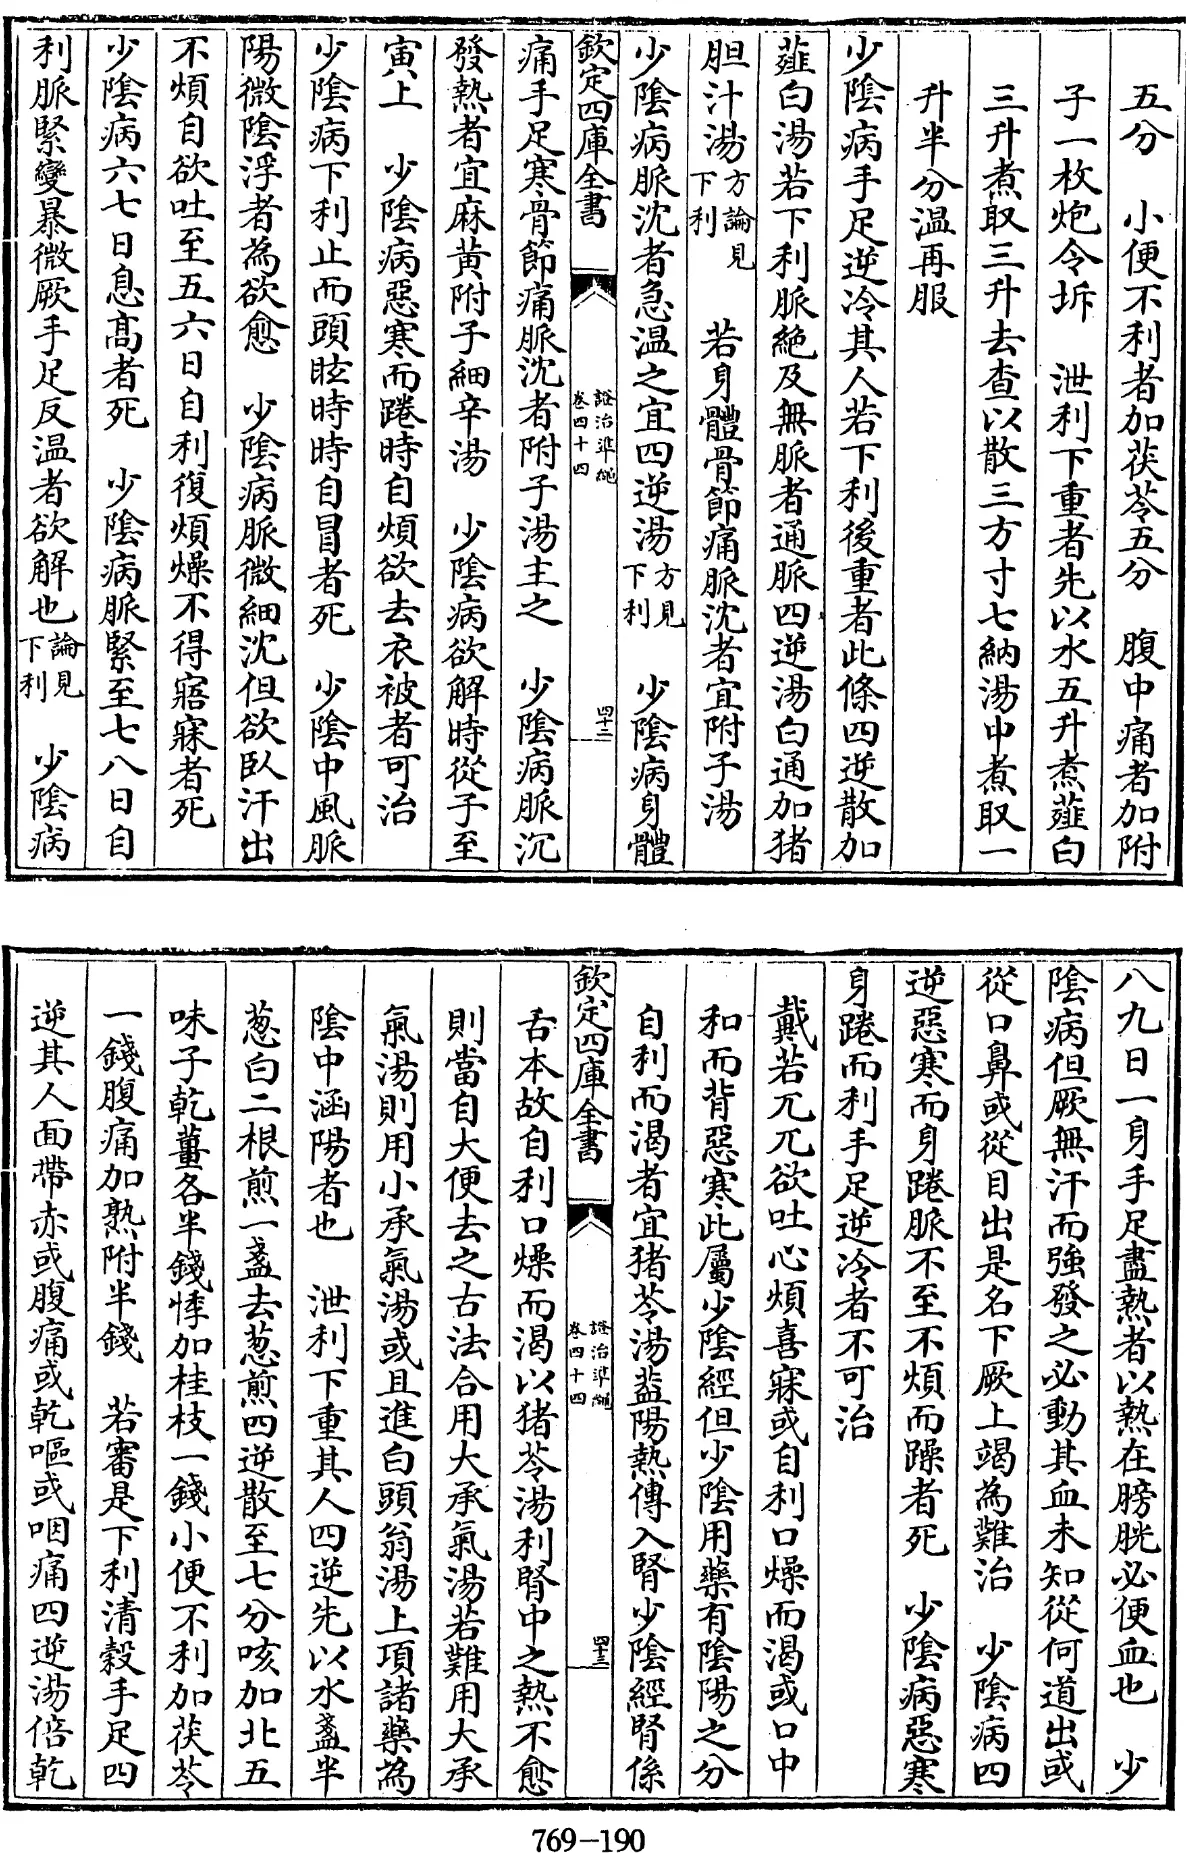 五分　小便不利者加茯苓五分　腹中痛者加附
子一枚炮令坼　泄利下重者先以水五升煮薤白
三升煮取三升去查以散三方寸匕納湯中煮取一
升半分温再服
少陰病手足逆冷其人若下利後重者此條四逆散加
薤白湯若下利脈絶及無脈者通脈四逆湯白通加猪
胆汁湯方論見下利　若身體骨節痛脈沈者宜附子湯
少陰病脈沈者急温之宜四逆湯方見下利　少陰病身體
欽定四庫全書　證治準繩卷四十四　四十二
痛手足寒骨節痛脈沈者附子湯主之　少陰病脈沉
發熱者宜麻黄附子細辛湯　少陰病欲解時從子至
寅上　少陰病惡寒而踡時自煩欲去衣被者可治
少陰病下利止而頭眩時時自冒者死　少陰中風脈
陽微陰浮者為欲愈　少陰病脈微細沈但欲臥汗出
不煩自欲吐至五六日自利復煩燥不得寤寐者死
少陰病六七日息髙者死　少陰病脈緊至七八日自
利脈緊變暴微厥手足反温者欲解也論見下利　少陰病
八九日一身手足盡熱者以熱在膀胱必便血也　少
陰病但厥無汗而強發之必動其血未知從何道出或
從口鼻或從目出是名下厥上竭為難治　少陰病四
逆惡寒而身踡脈不至不煩而躁者死　少陰病惡寒
身踡而利手足逆冷者不可治
戴若兀兀欲吐心煩喜寐或自利口燥而渴或口中
和而背惡寒此屬少陰經但少陰用藥有陰陽之分
自利而渴者宜猪苓湯葢陽熱傳入腎少陰經腎係
欽定四庫全書　證治準繩卷四十四　四十三
舌本故自利口燥而渴以猪苓湯利腎中之熱不愈
則當自大便去之古法合用大承氣湯若難用大承
氣湯則用小承氣湯或且進白頭翁湯上項諸藥為
陰中涵陽者也　泄利下重其人四逆先以水盞半
葱白二根煎一盞去葱煎四逆散至七分咳加北五
味子乾薑各半錢悸加桂枝一錢小便不利加茯苓
一錢腹痛加熟附半錢　若審是下利清穀手足四
逆其人面帶赤或腹痛或乾嘔或咽痛四逆湯倍乾
769-190